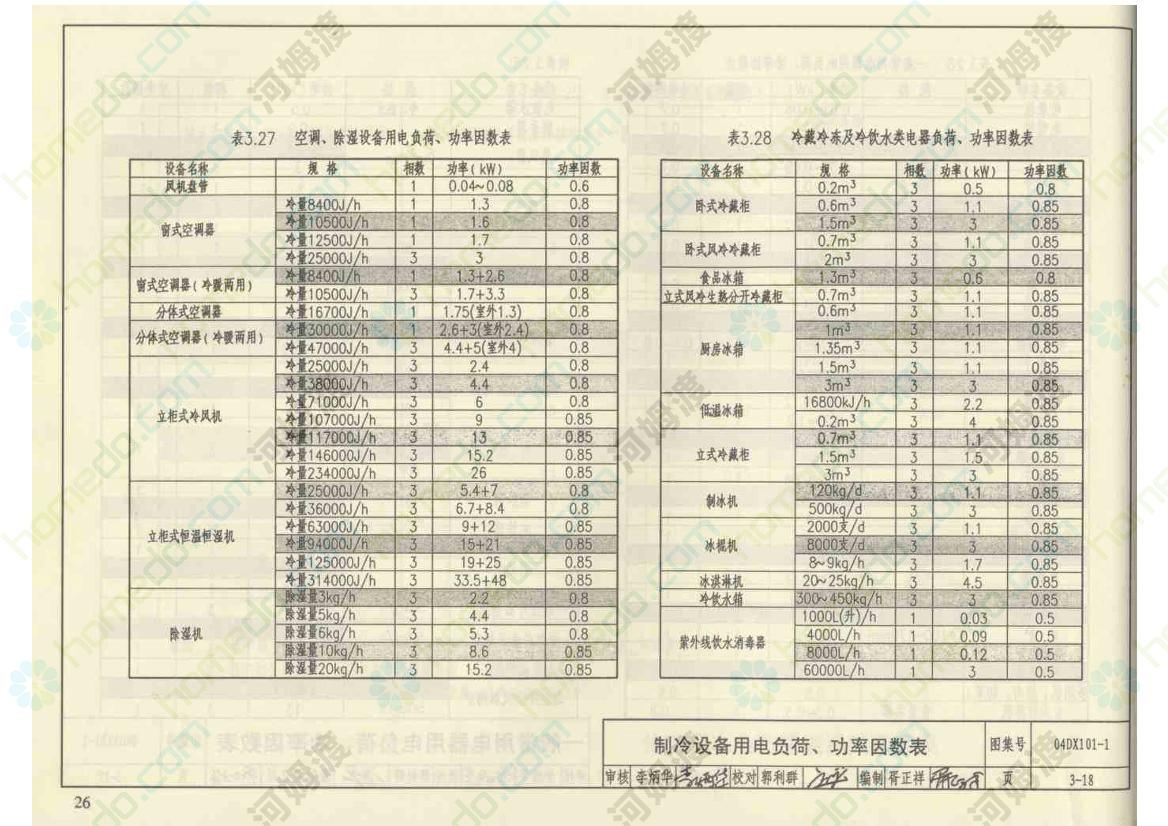 表3.27 空调、除湿设备用电负荷、功率因数表
设备名称 规 格 相数 功率(kW) 功率因数
风机盘管 1 0.04~0.08 0.6
窗式空调器 冷量8400J/h 1 1.3 0.8
冷量10500J/h 1 1.6 0.8
冷量12500J/h 1 1.7 0.8
冷量25000J/h 3 3 0.8
窗式空调器(冷暖两用) 冷量8400J/h 1 1.3+2.6 0.8
冷量10500J/h 3 1.7+3.3 0.8
分体式空调器 冷量16700J/h 1 1.75(室外1.3) 0.8
分体式空调器(冷暖两用) 冷量30000J/h 1 2.6+3(室外2.4) 0.8
冷量47000J/h 3 4.4+5(室外4) 0.8
立柜式冷风机 冷量25000J/h 3 2.4 0.8
冷量38000J/h 3 4.4 0.8
冷量71000J/h 3 6 0.8
冷量107000J/h 3 9 0.85
冷量117000J/h 3 13 0.85
冷量146000J/h 3 15.2 0.85
冷量234000J/h 3 26 0.85
立柜式恒温恒湿机 冷量25000J/h 3 5.4+7 0.8
冷量36000J/h 3 6.7+8.4 0.8
冷量63000J/h 3 9+12 0.85
冷量94000J/h 3 15+21 0.85
冷量125000J/h 3 19+25 0.85
冷量314000J/h 3 33.5+48 0.85
除湿机 除湿量3kg/h 3 2.2 0.8
除湿量5kg/h 3 4.4 0.8
除湿量6kg/h 3 5.3 0.8
除湿量10kg/h 3 8.6 0.85
除湿量20kg/h 3 15.2 0.85
表3.28 冷藏冷冻及冷饮水类电器负荷、功率因数表
设备名称 规 格 相数 功率(kW) 功率因数
卧式冷藏柜 0.2m³ 3 0.5 0.8
0.6m³ 3 1.1 0.85
1.5m³ 3 3 0.85
卧式风冷冷藏柜 0.7m³ 3 1.1 0.85
2m³ 3 3 0.85
食品冰箱 1.3m³ 3 0.6 0.8
立式风冷生熟分开冷藏柜 0.7m³ 3 1.1 0.85
厨房冰箱 0.6m³ 3 1.1 0.85
1m³ 3 1.1 0.85
1.35m³ 3 1.1 0.85
1.5m³ 3 1.1 0.85
3m³ 3 3 0.85
低温冰箱 16800kJ/h 3 2.2 0.85
0.2m³ 3 4 0.85
立式冷藏柜 0.7m³ 3 1.1 0.85
1.5m³ 3 1.5 0.85
3m³ 3 3 0.85
制冰机 120kg/d 3 1.1 0.85
500kg/d 3 3 0.85
冰棍机 2000支/d 3 1.1 0.85
8000支/d 3 3 0.85
8~9kg/h 3 1.7 0.85
冰淇淋机 20~25kg/h 3 4.5 0.85
冷饮水箱 300~450kg/h 3 3 0.85
紫外线饮水消毒器 1000L(升)/h 1 0.03 0.5
4000L/h 1 0.09 0.5
8000L/h 1 0.12 0.5
60000L/h 1 3 0.5
制冷设备用电负荷、功率因数表 图集号 04DX101-1
审核 李炳华 校对 郭利群 编制 胥正祥 页 3-18
26
河姆渡
homedo.com